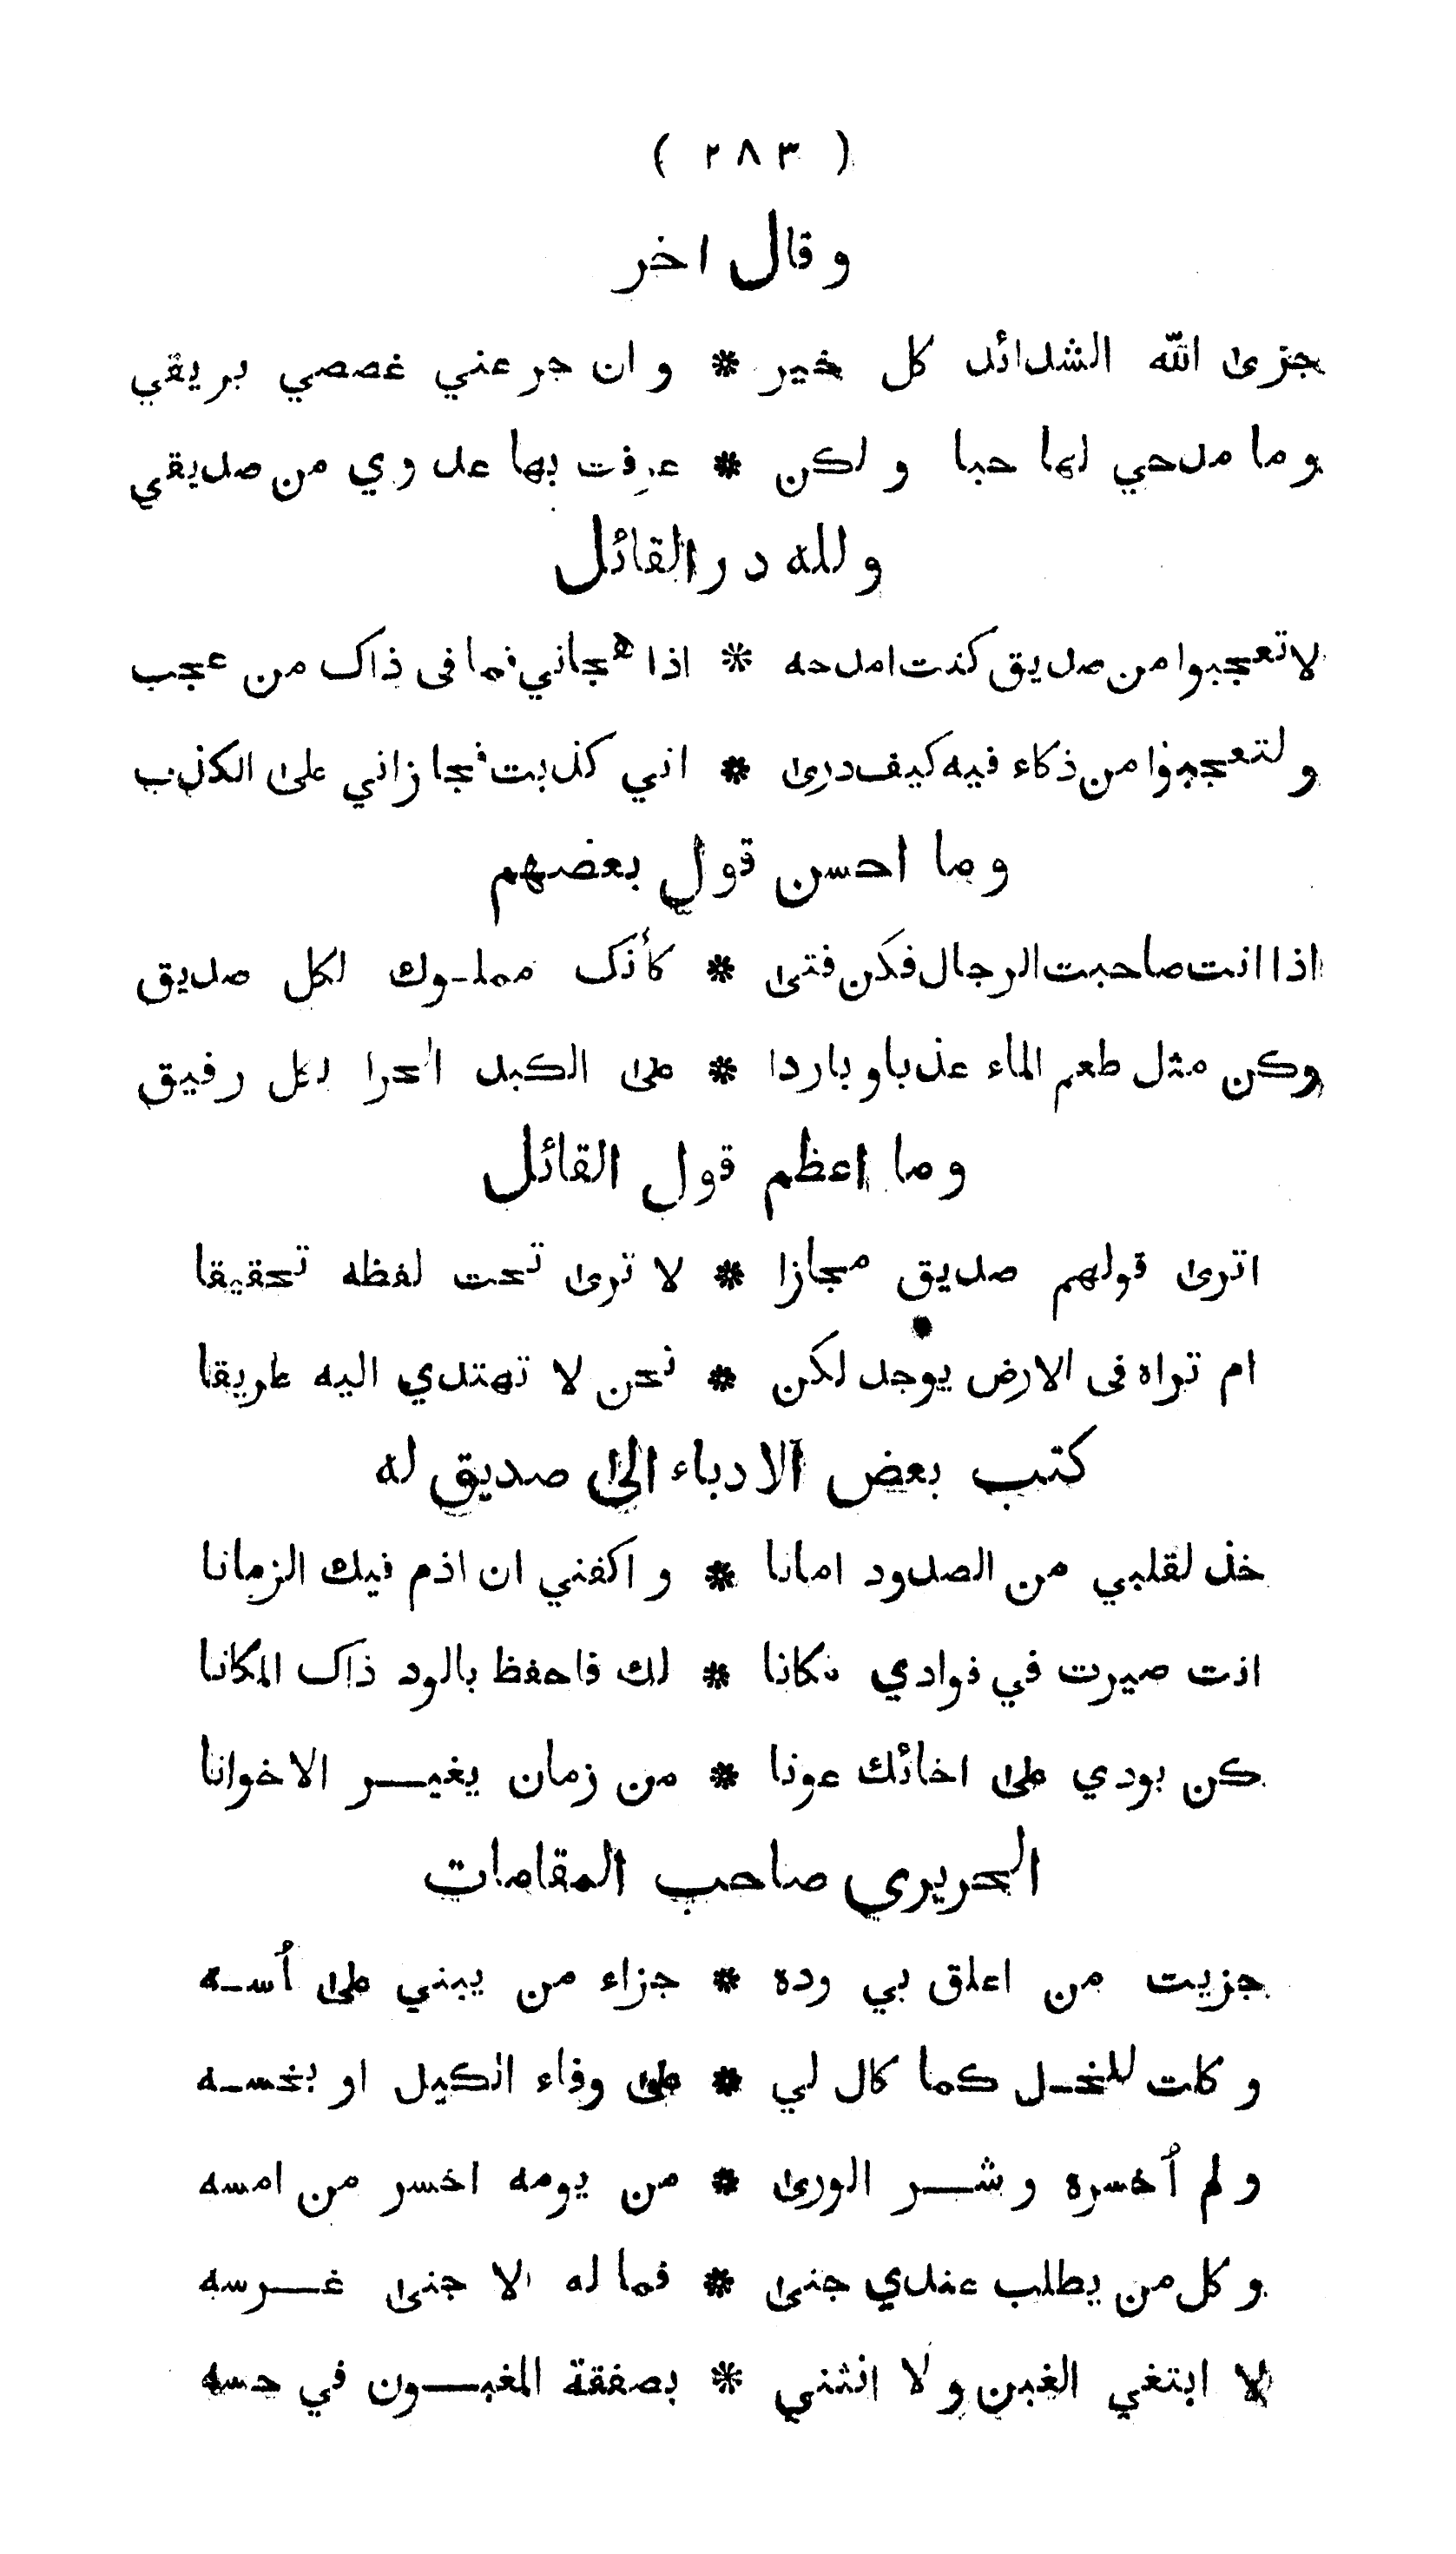 ( ٢٨٣ )
وقال اخر
جزى الله الشدائد كل خير * وان جرعني غصصي بريقي
وما مدحي لها حبا ولكن * عرفت بها عدوي من صديقي
ولله در القائل
لا تعجبوا من صديق كنت امدحه * اذا هجاني فما فى ذاك من عجب
ولتعجبوا من ذكاء فيه كيف درى * اني كذبت فجازاني على الكذب
وما احسن قول بعضهم
اذا انت صاحبت الرجال فكن فتى * كأنك مملوك لكل صديق
وكن مثل طعم الماء عذبا وباردا * على الكبد الحرا لكل رفيق
وما اعظم قول القائل
اترى قولهم صديق مجازا * لا ترى تحت لفظه تحقيقا
ام تراه فى الارض يوجد لكن * نحن لا تهتدي اليه طريقا
كتب بعض الادباء الى صديق له
خذ لقلبي من الصدود امانا * واكفني ان اذم فيك الزمانا
انت صيرت في فوادي مكانا * لك فاحفظ بالود ذاك المكانا
كن بودي على اخائك عونا * من زمان يغيـــر الاخوانا
الحريري صاحب المقامات
جزيت من اعلق بي وده * جزاء من يبني على أُسـه
وكلت للخـل كما كال لي * على وفاء الكيل او بخسـه
ولم أُخسره وشـــر الورى * من يومه اخسر من امسه
وكل من يطلب عندي جنى * فما له الا جنى غـــرسه
لا ابتغي الغبن ولا انثني * بصفقة المغبـــون في حسه